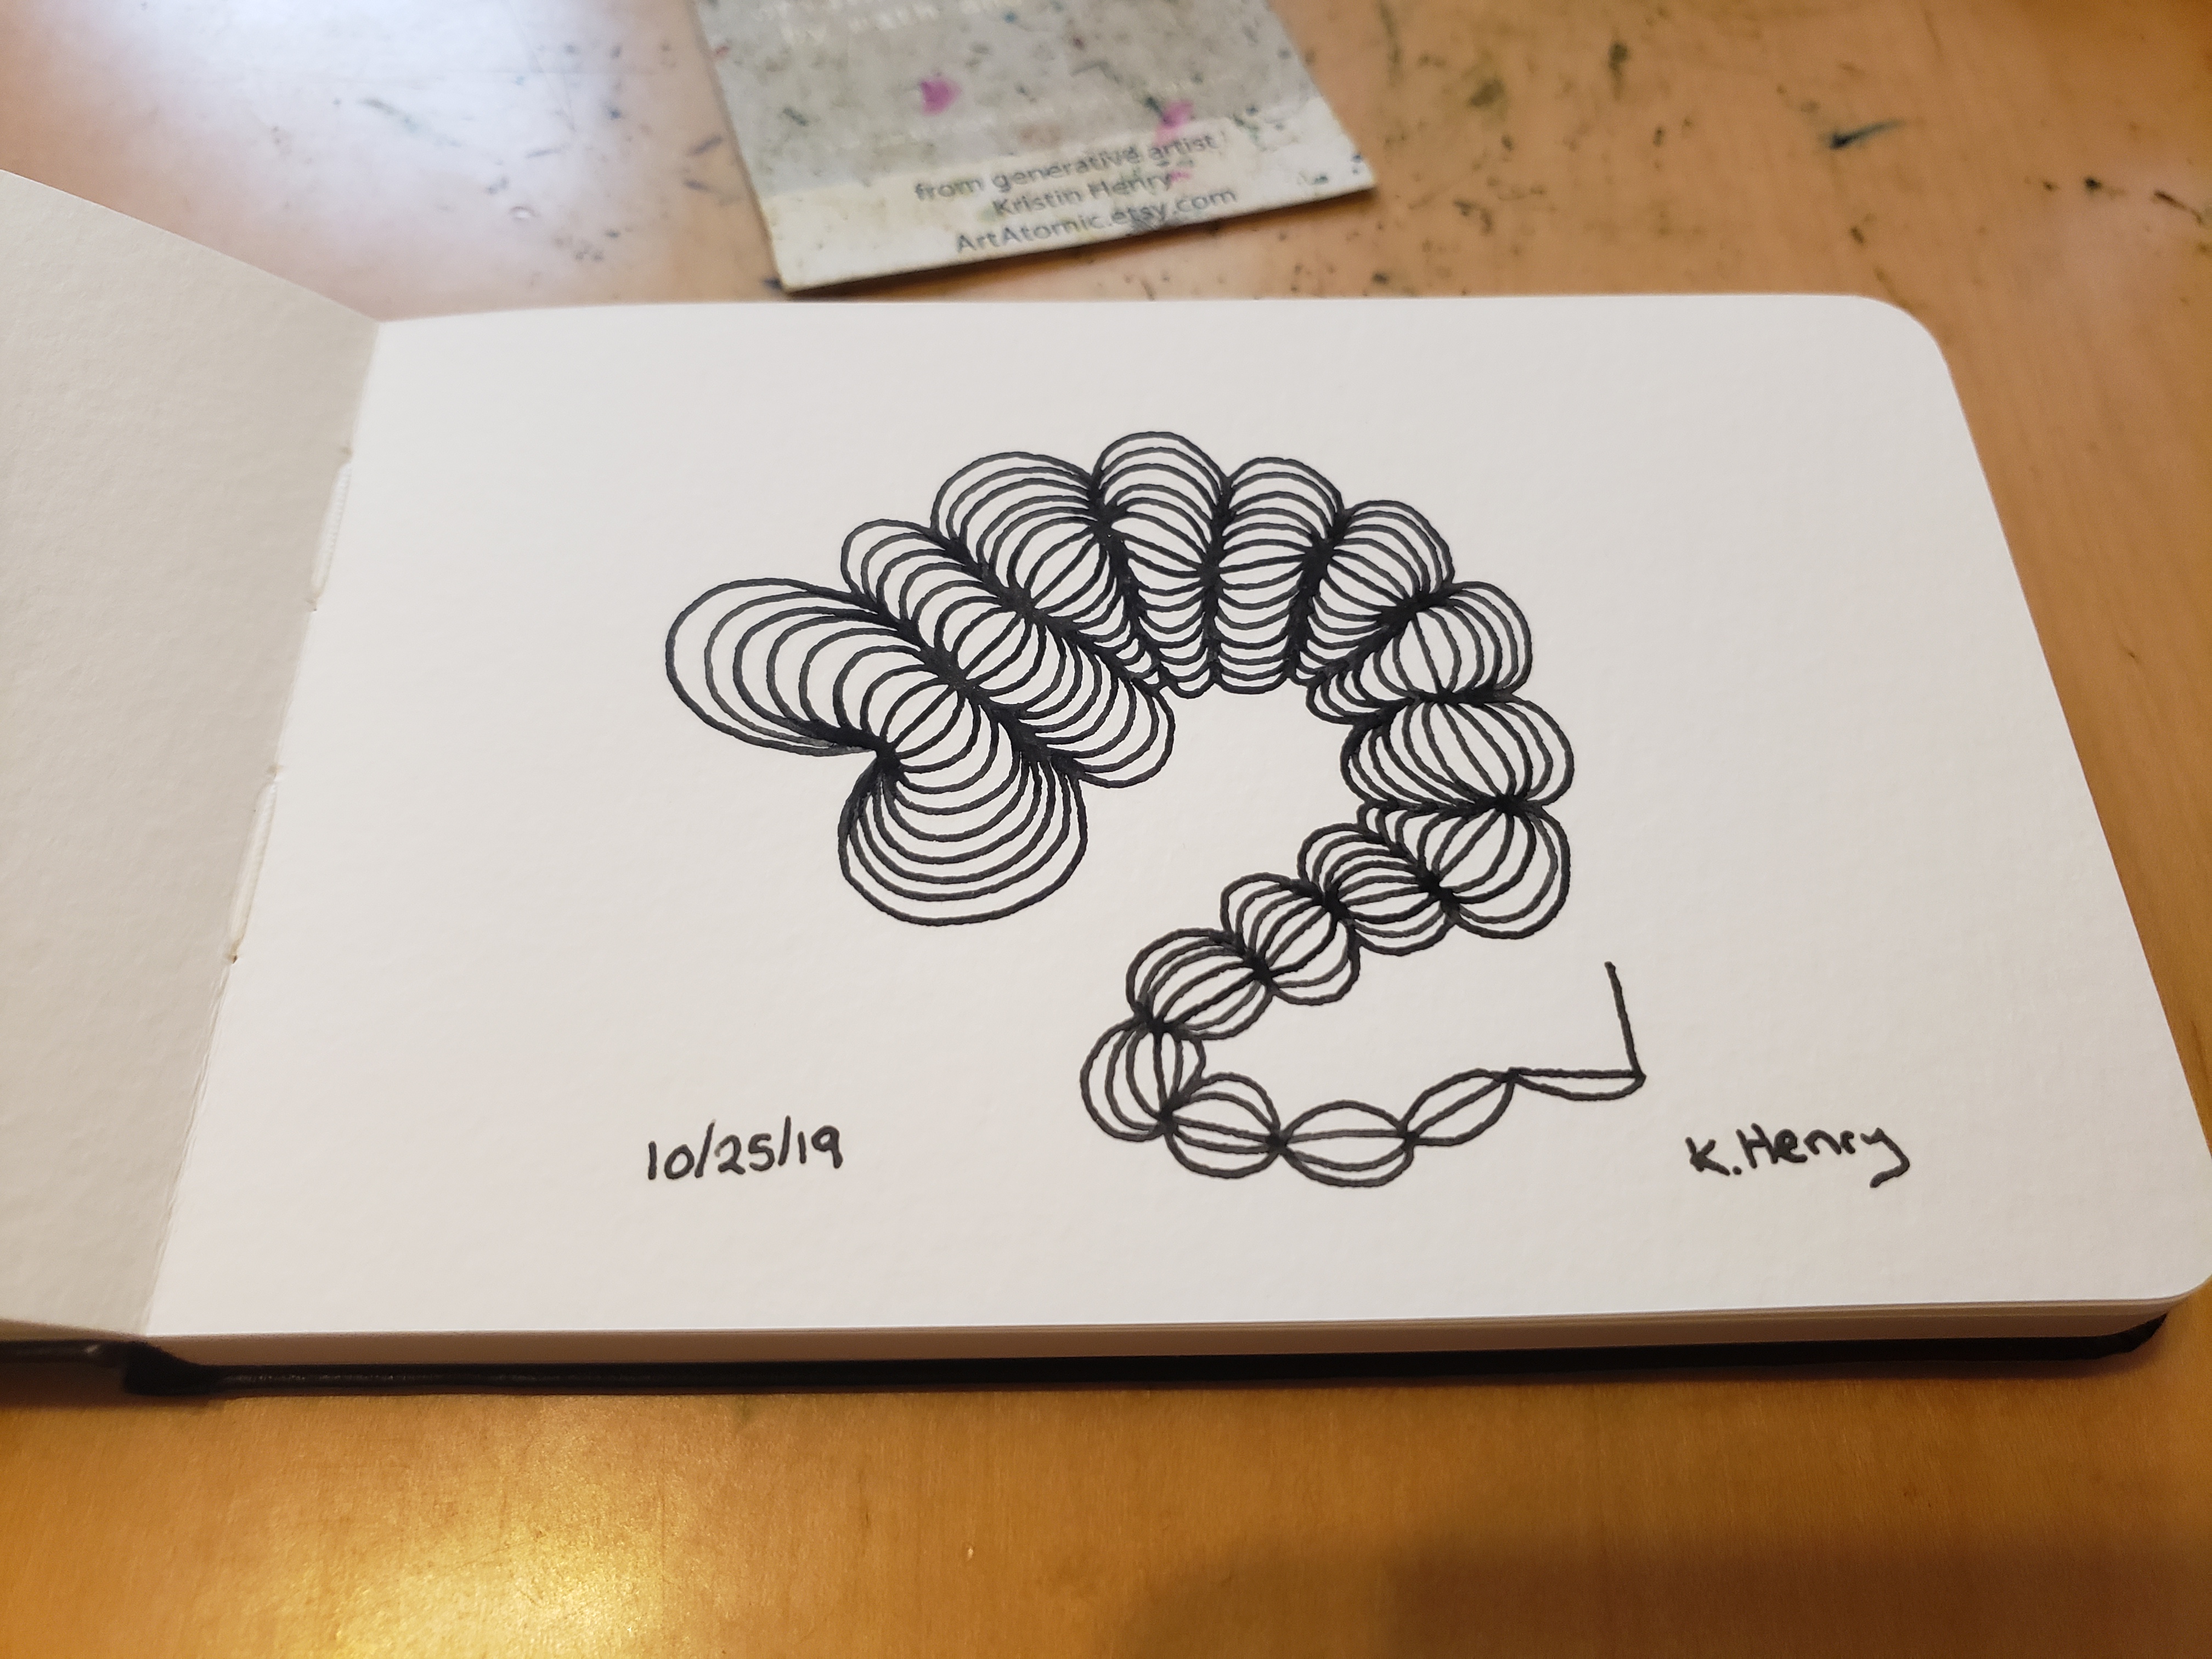 from generative artist
Kristin Henry
ArtAtomic.etsy.com
10/25/19
K.Henry